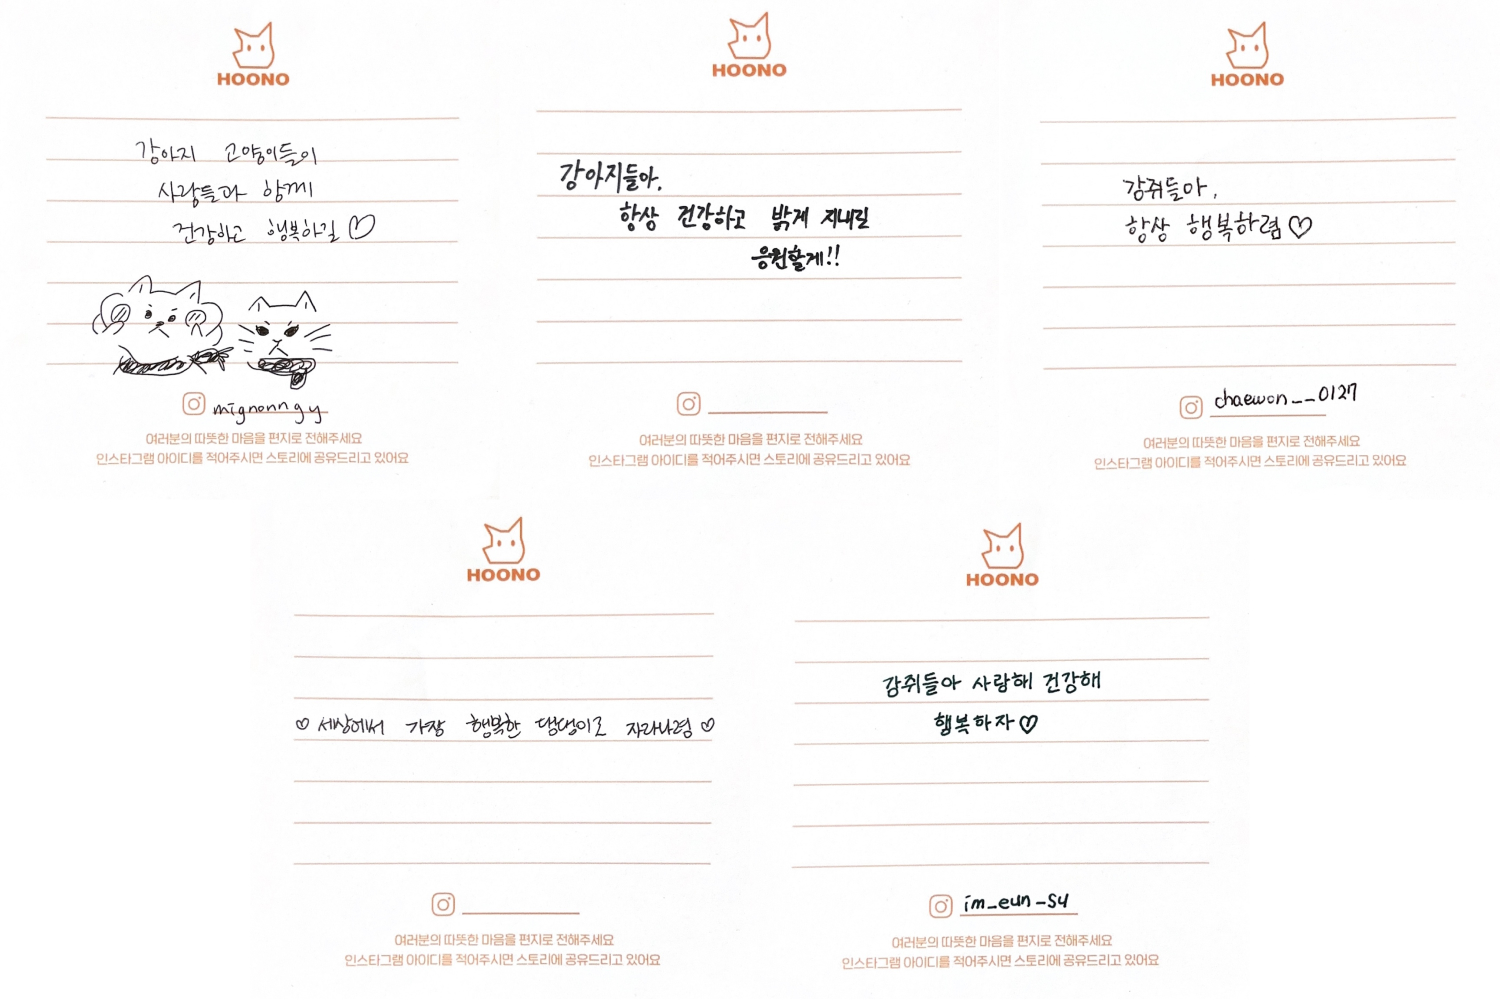 HOONO
강아지 고양이들이
사람들과 함께
건강하고 행복하길♡
mignonngy
여러분의 따뜻한 마음을 편지로 전해주세요
인스타그램 아이디를 적어주시면 스토리에 공유드리고 있어요
HOONO
강아지들아,
항상 건강하고 밝게 지내길
응원할게!!
여러분의 따뜻한 마음을 편지로 전해주세요
인스타그램 아이디를 적어주시면 스토리에 공유드리고 있어요
HOONO
감쥐들아,
항상 행복하렴♡
chaewon__0127
여러분의 따뜻한 마음을 편지로 전해주세요
인스타그램 아이디를 적어주시면 스토리에 공유드리고 있어요
HOONO
♡ 세상에서 가장 행복한 댕댕이로 자라나렴 ♡
여러분의 따뜻한 마음을 편지로 전해주세요
인스타그램 아이디를 적어주시면 스토리에 공유드리고 있어요
HOONO
감쥐들아 사랑해 건강해
행복하자♡
im_eun_su
여러분의 따뜻한 마음을 편지로 전해주세요
인스타그램 아이디를 적어주시면 스토리에 공유드리고 있어요